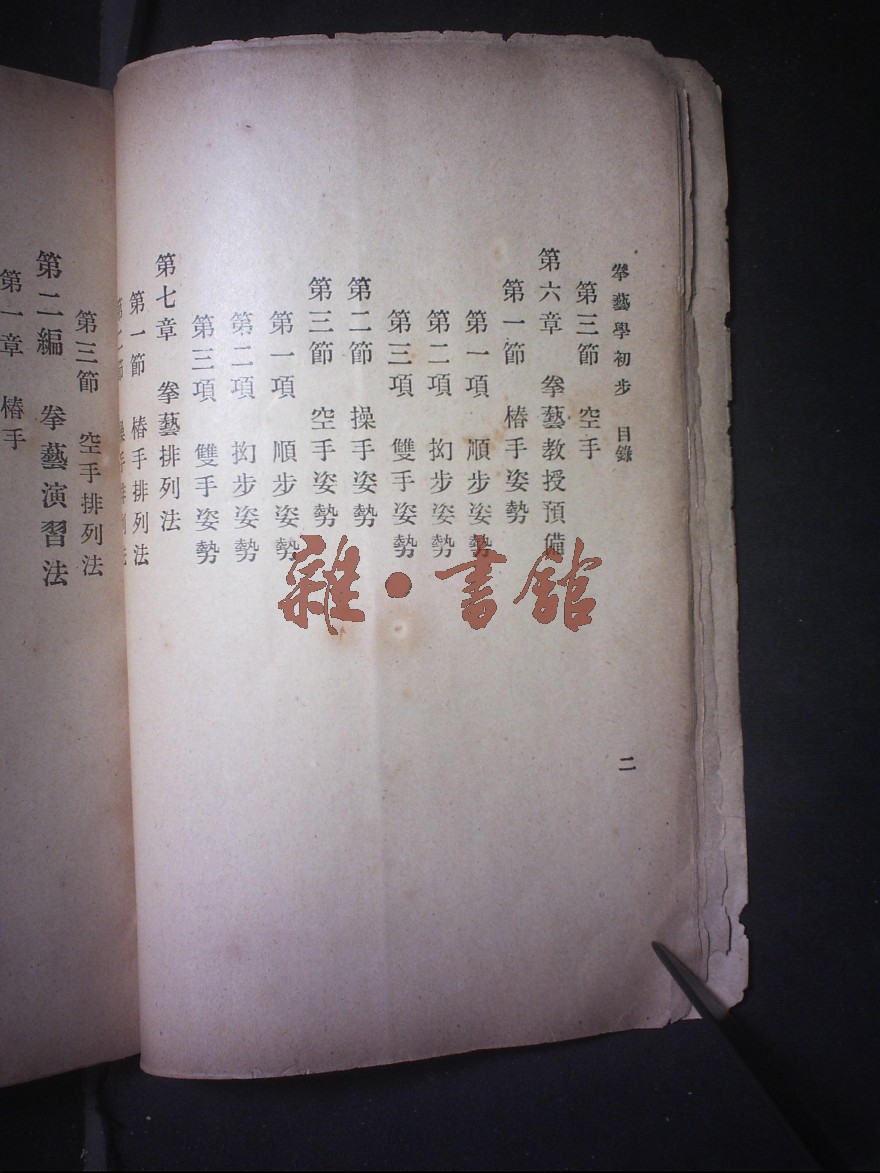 拳藝學初步 目錄
二
第三節 空手
第六章 拳藝教授預備
第一節 樁手姿勢
第一項 順步姿勢
第二項 拗步姿勢
第三項 雙手姿勢
第二節 操手姿勢
第三節 空手姿勢
第一項 順步姿勢
第二項 拗步姿勢
第三項 雙手姿勢
第七章 拳藝排列法
第一節 樁手排列法
第二節 操手排列法
第三節 空手排列法
第二編 拳藝演習法
第一章 樁手
雜·書館